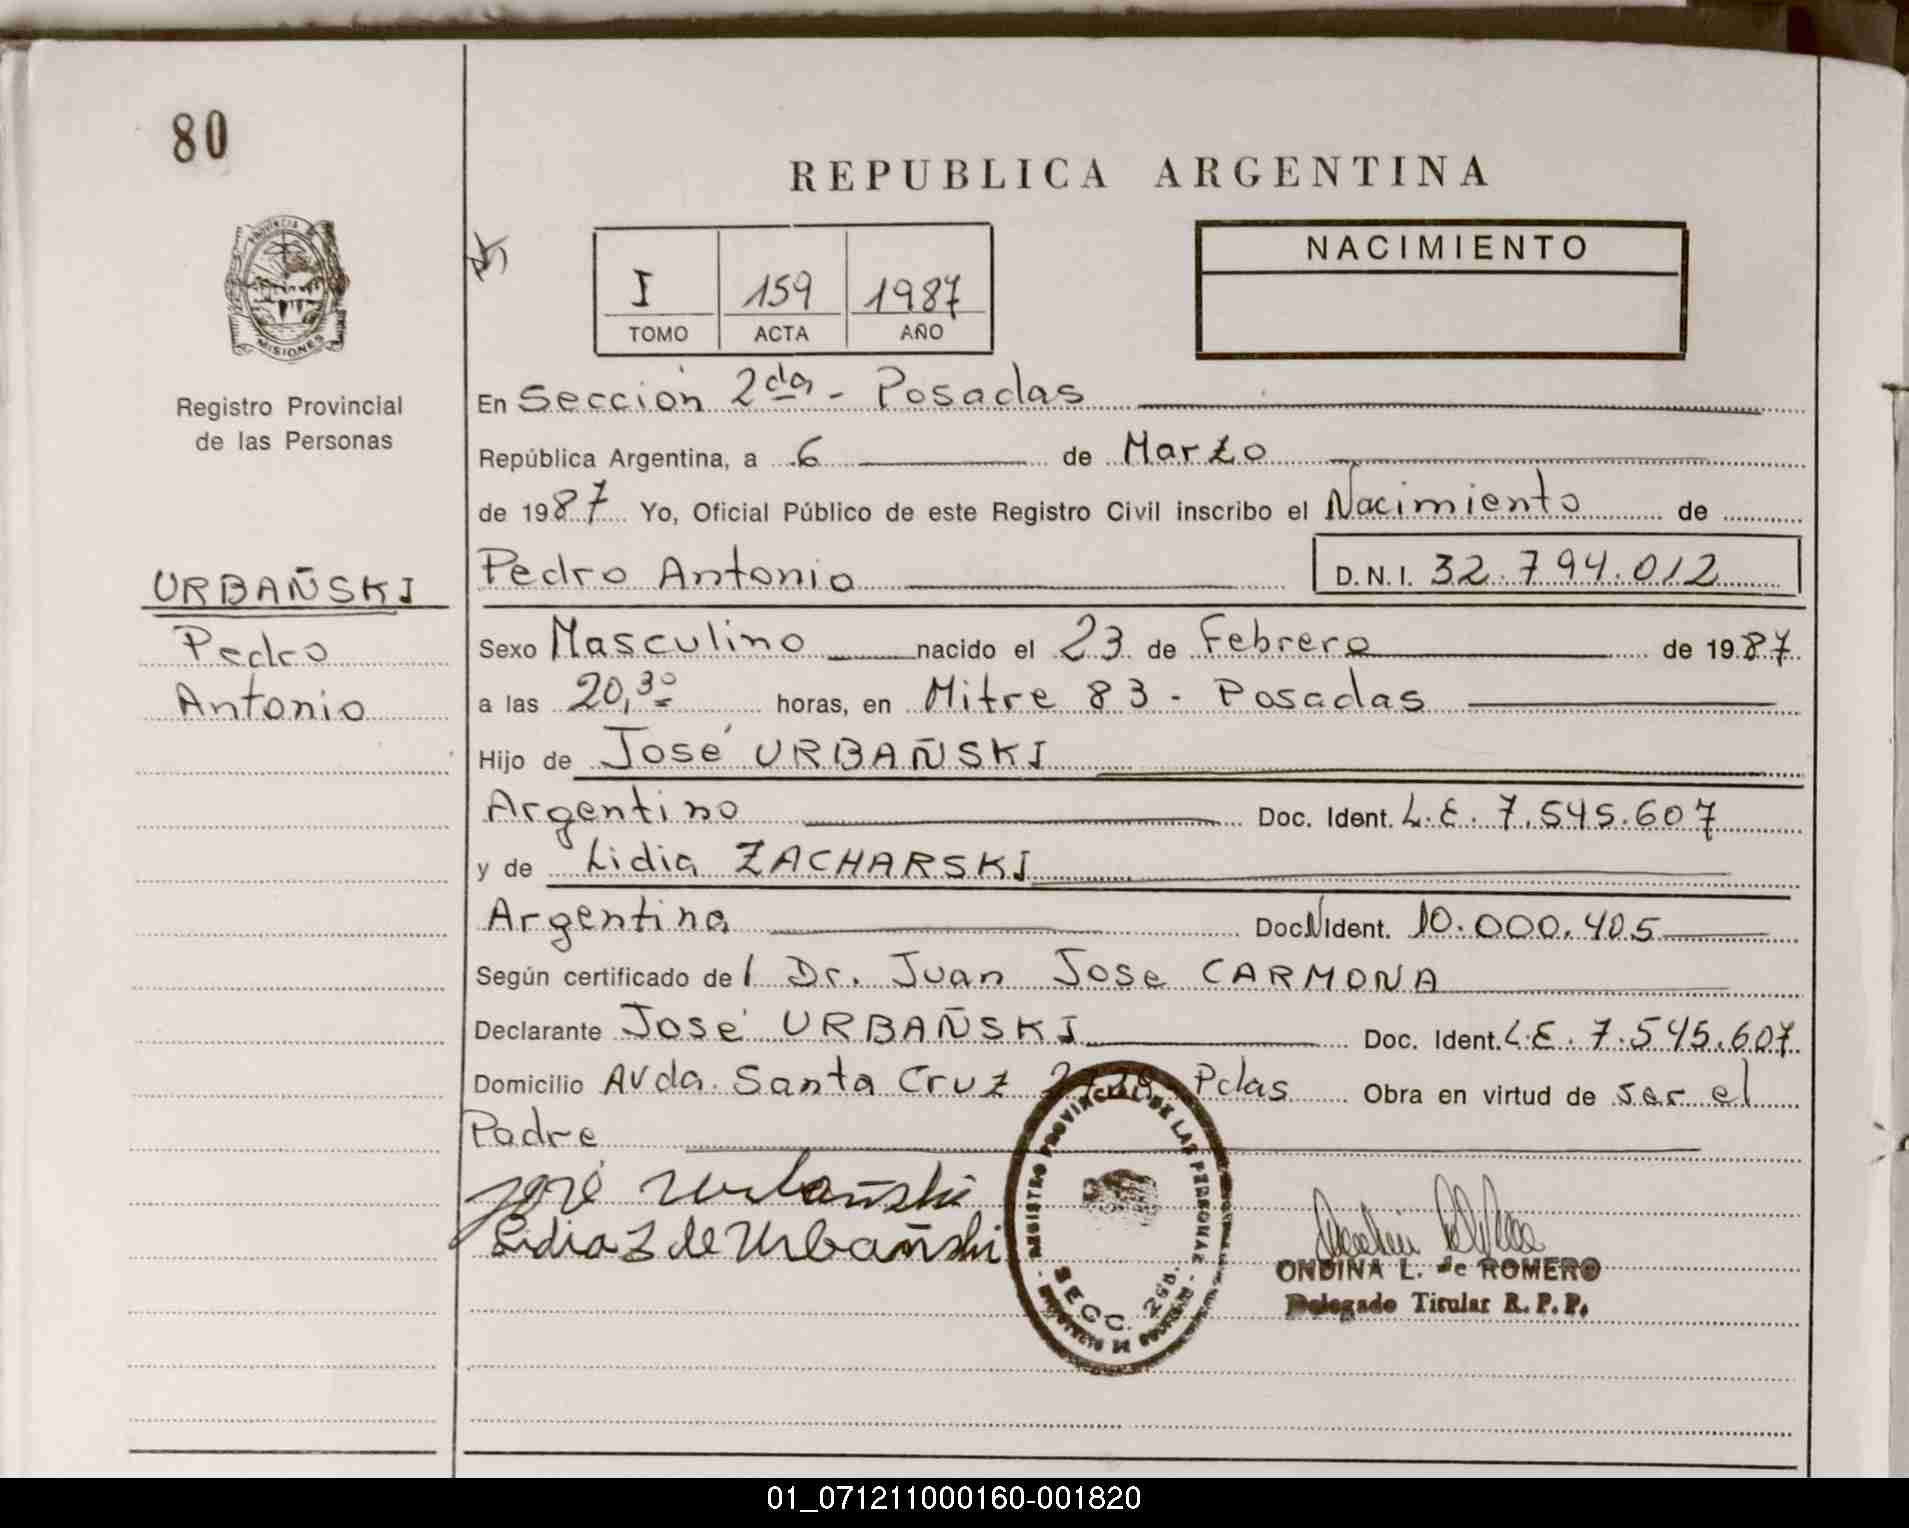 80
REPUBLICA ARGENTINA
PROVINCIA DE
MISIONES
Registro Provincial
de las Personas
I 159 1987
TOMO ACTA AÑO
NACIMIENTO
En Sección 2da - Posadas
República Argentina, a 6 de Marzo
de 1987 Yo, Oficial Público de este Registro Civil inscribo el Nacimiento de
URBAÑSKI
Pedro
Antonio
Pedro Antonio D.N.I. 32.794.012
Sexo Masculino nacido el 23 de Febrero de 1987
a las 20,30 horas, en Mitre 83 - Posadas
Hijo de José URBAÑSKI
Argentino Doc. Ident. L.E. 7.545.607
y de Lidia ZACHARSKI
Argentina Doc. Ident. 10.000.405
Según certificado del Dr. Juan Jose CARMONA
Declarante José URBAÑSKI Doc. Ident. L.E. 7.545.607
Domicilio Avda. Santa Cruz Pdas Obra en virtud de ser el
Padre
José Urbañski
Lidia Z de Urbañski
REGISTRO PROVINCIAL DE LAS PERSONAS
SECC. 2da.
ONDINA L. de ROMERO
Delegado Titular R.P.P.
01_071211000160-001820